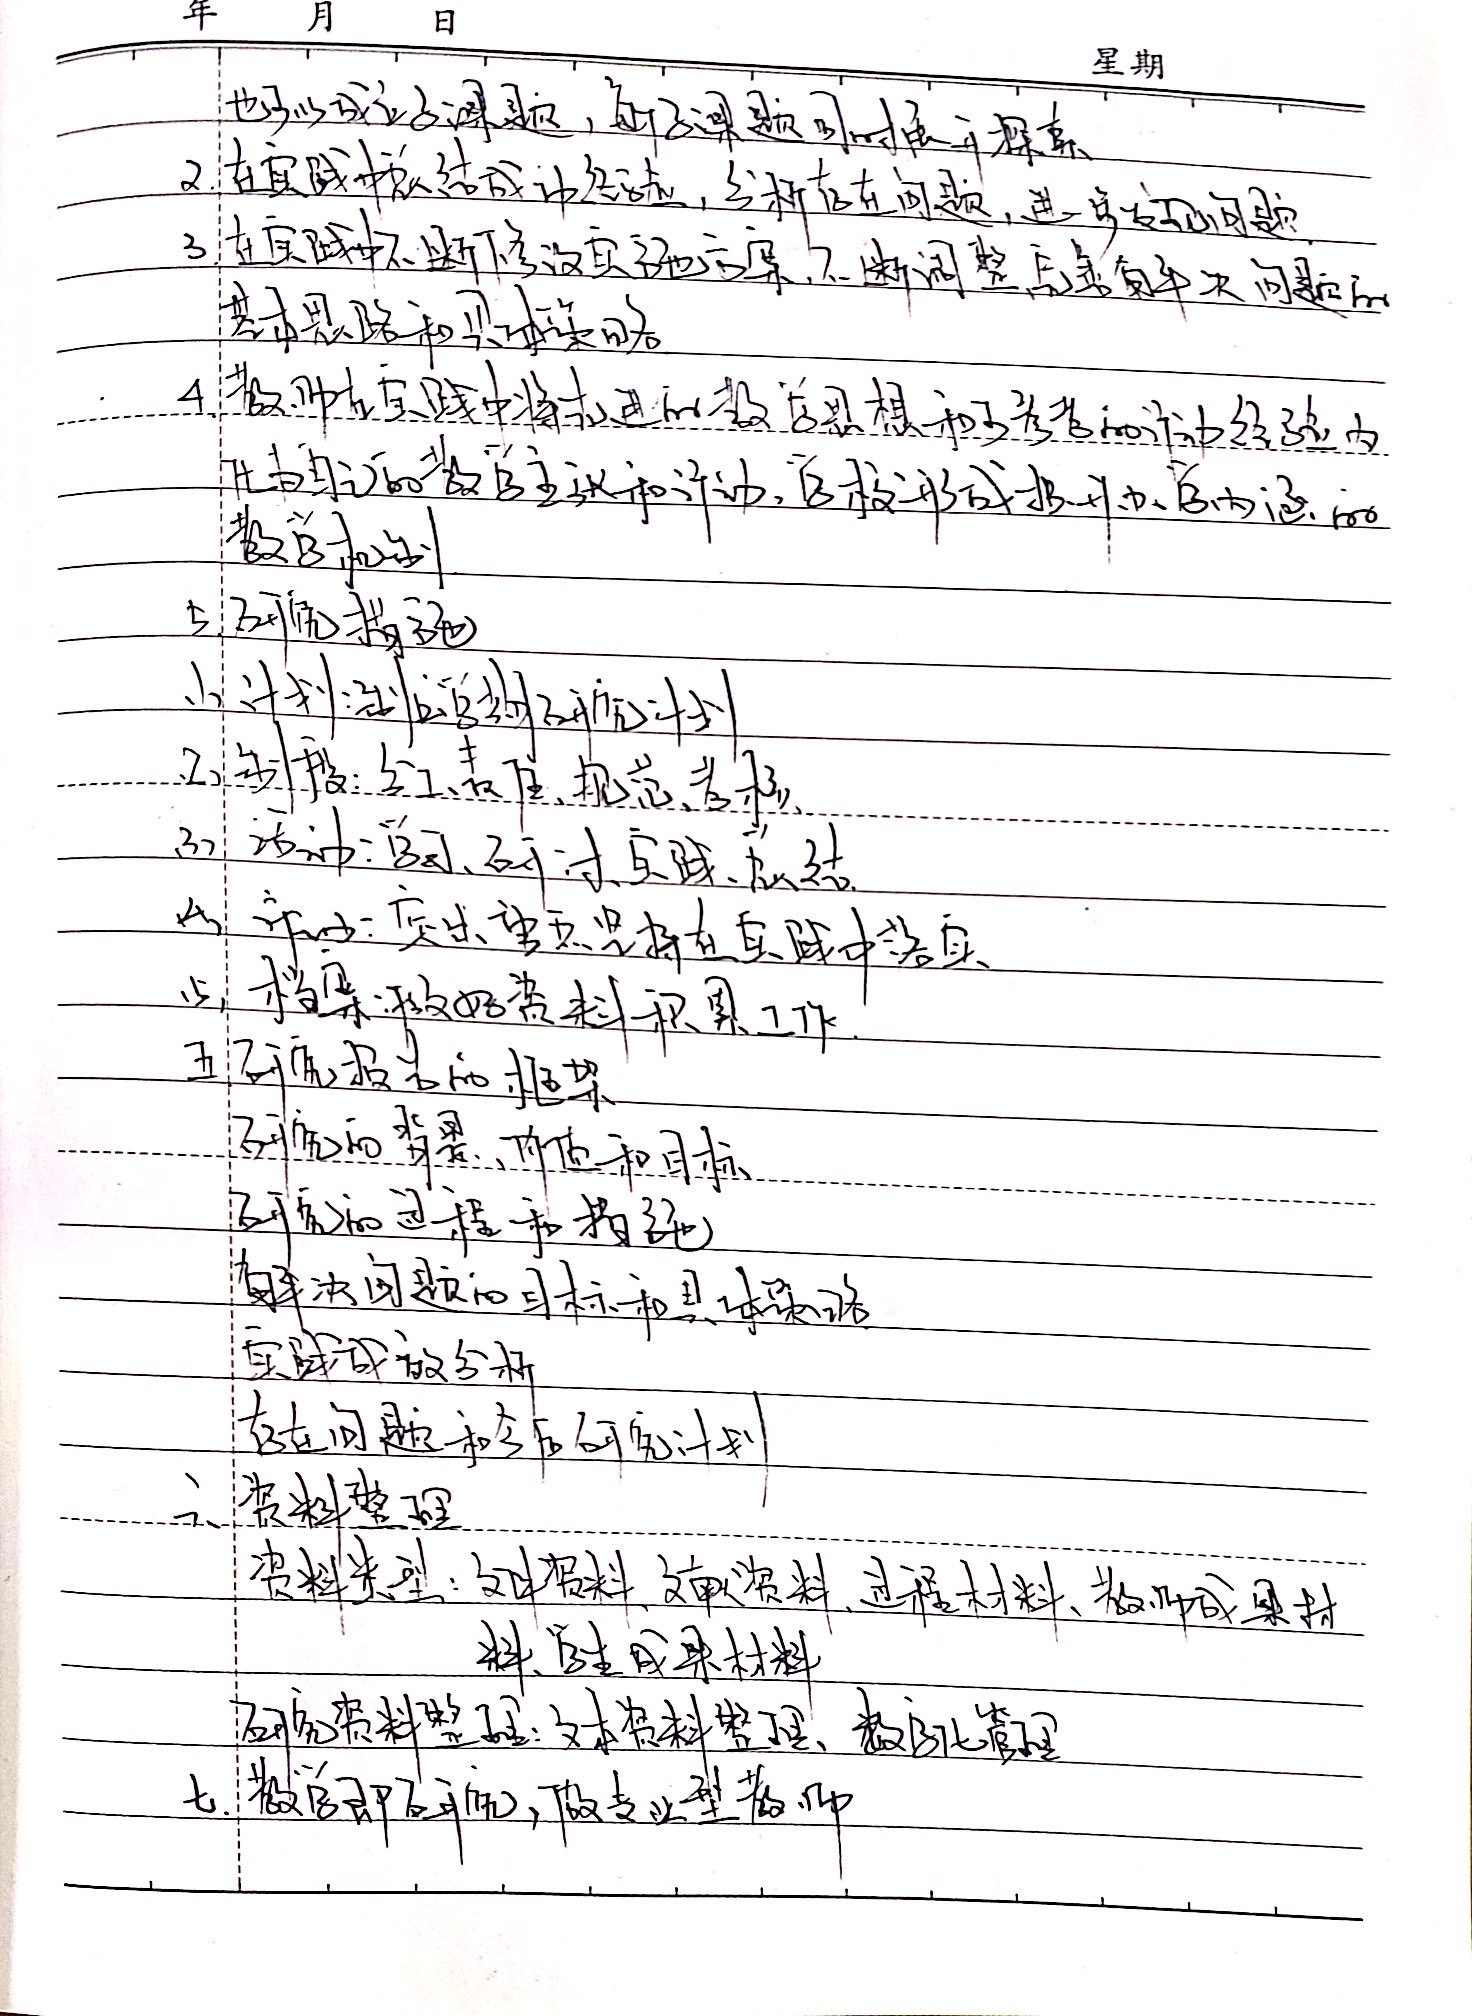 年 月 日
星期
也可以成立子课题，每个子课题同时展开探索
2. 在实践中总结成功经验，分析存在问题，进一步发现问题
3. 在实践中不断修改实施方案，不断调整完善解决问题的
基本思路和具体策略
4. 教师在实践中将先进的教学思想和可参考的评功经验内
化为自己的教学主张和行动、学校形成提升办学内涵的
教学机制
5. 研究措施
(1) 计划：制定学期研究计划
(2) 制度：分工、责任、规范、考核
(3) 活动：学习、研讨、实践、总结
(4) 行动：突出重点 坚持在实践中落实
(5) 档案：做好资料积累工作
五 研究报告的框架
研究的背景、价值和目标
研究的过程和措施
解决问题的目标和具体策略
实践成效分析
存在问题和今后研究计划
六、资料整理
资料类型：文件资料、文献资料、过程材料、教师成果材
料、学生成果材料
研究资料整理：文本资料整理、数字化管理
七. 教学即研究，做专业型教师